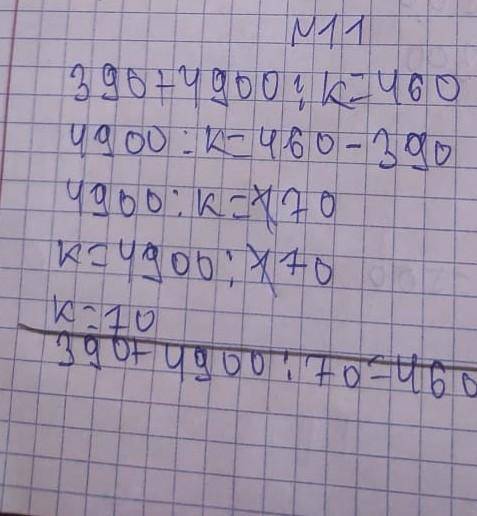 №11
390+4900:k=460
4900:k=460-390
4900:k=70
k=4900:70
k=70
390+4900:70=460